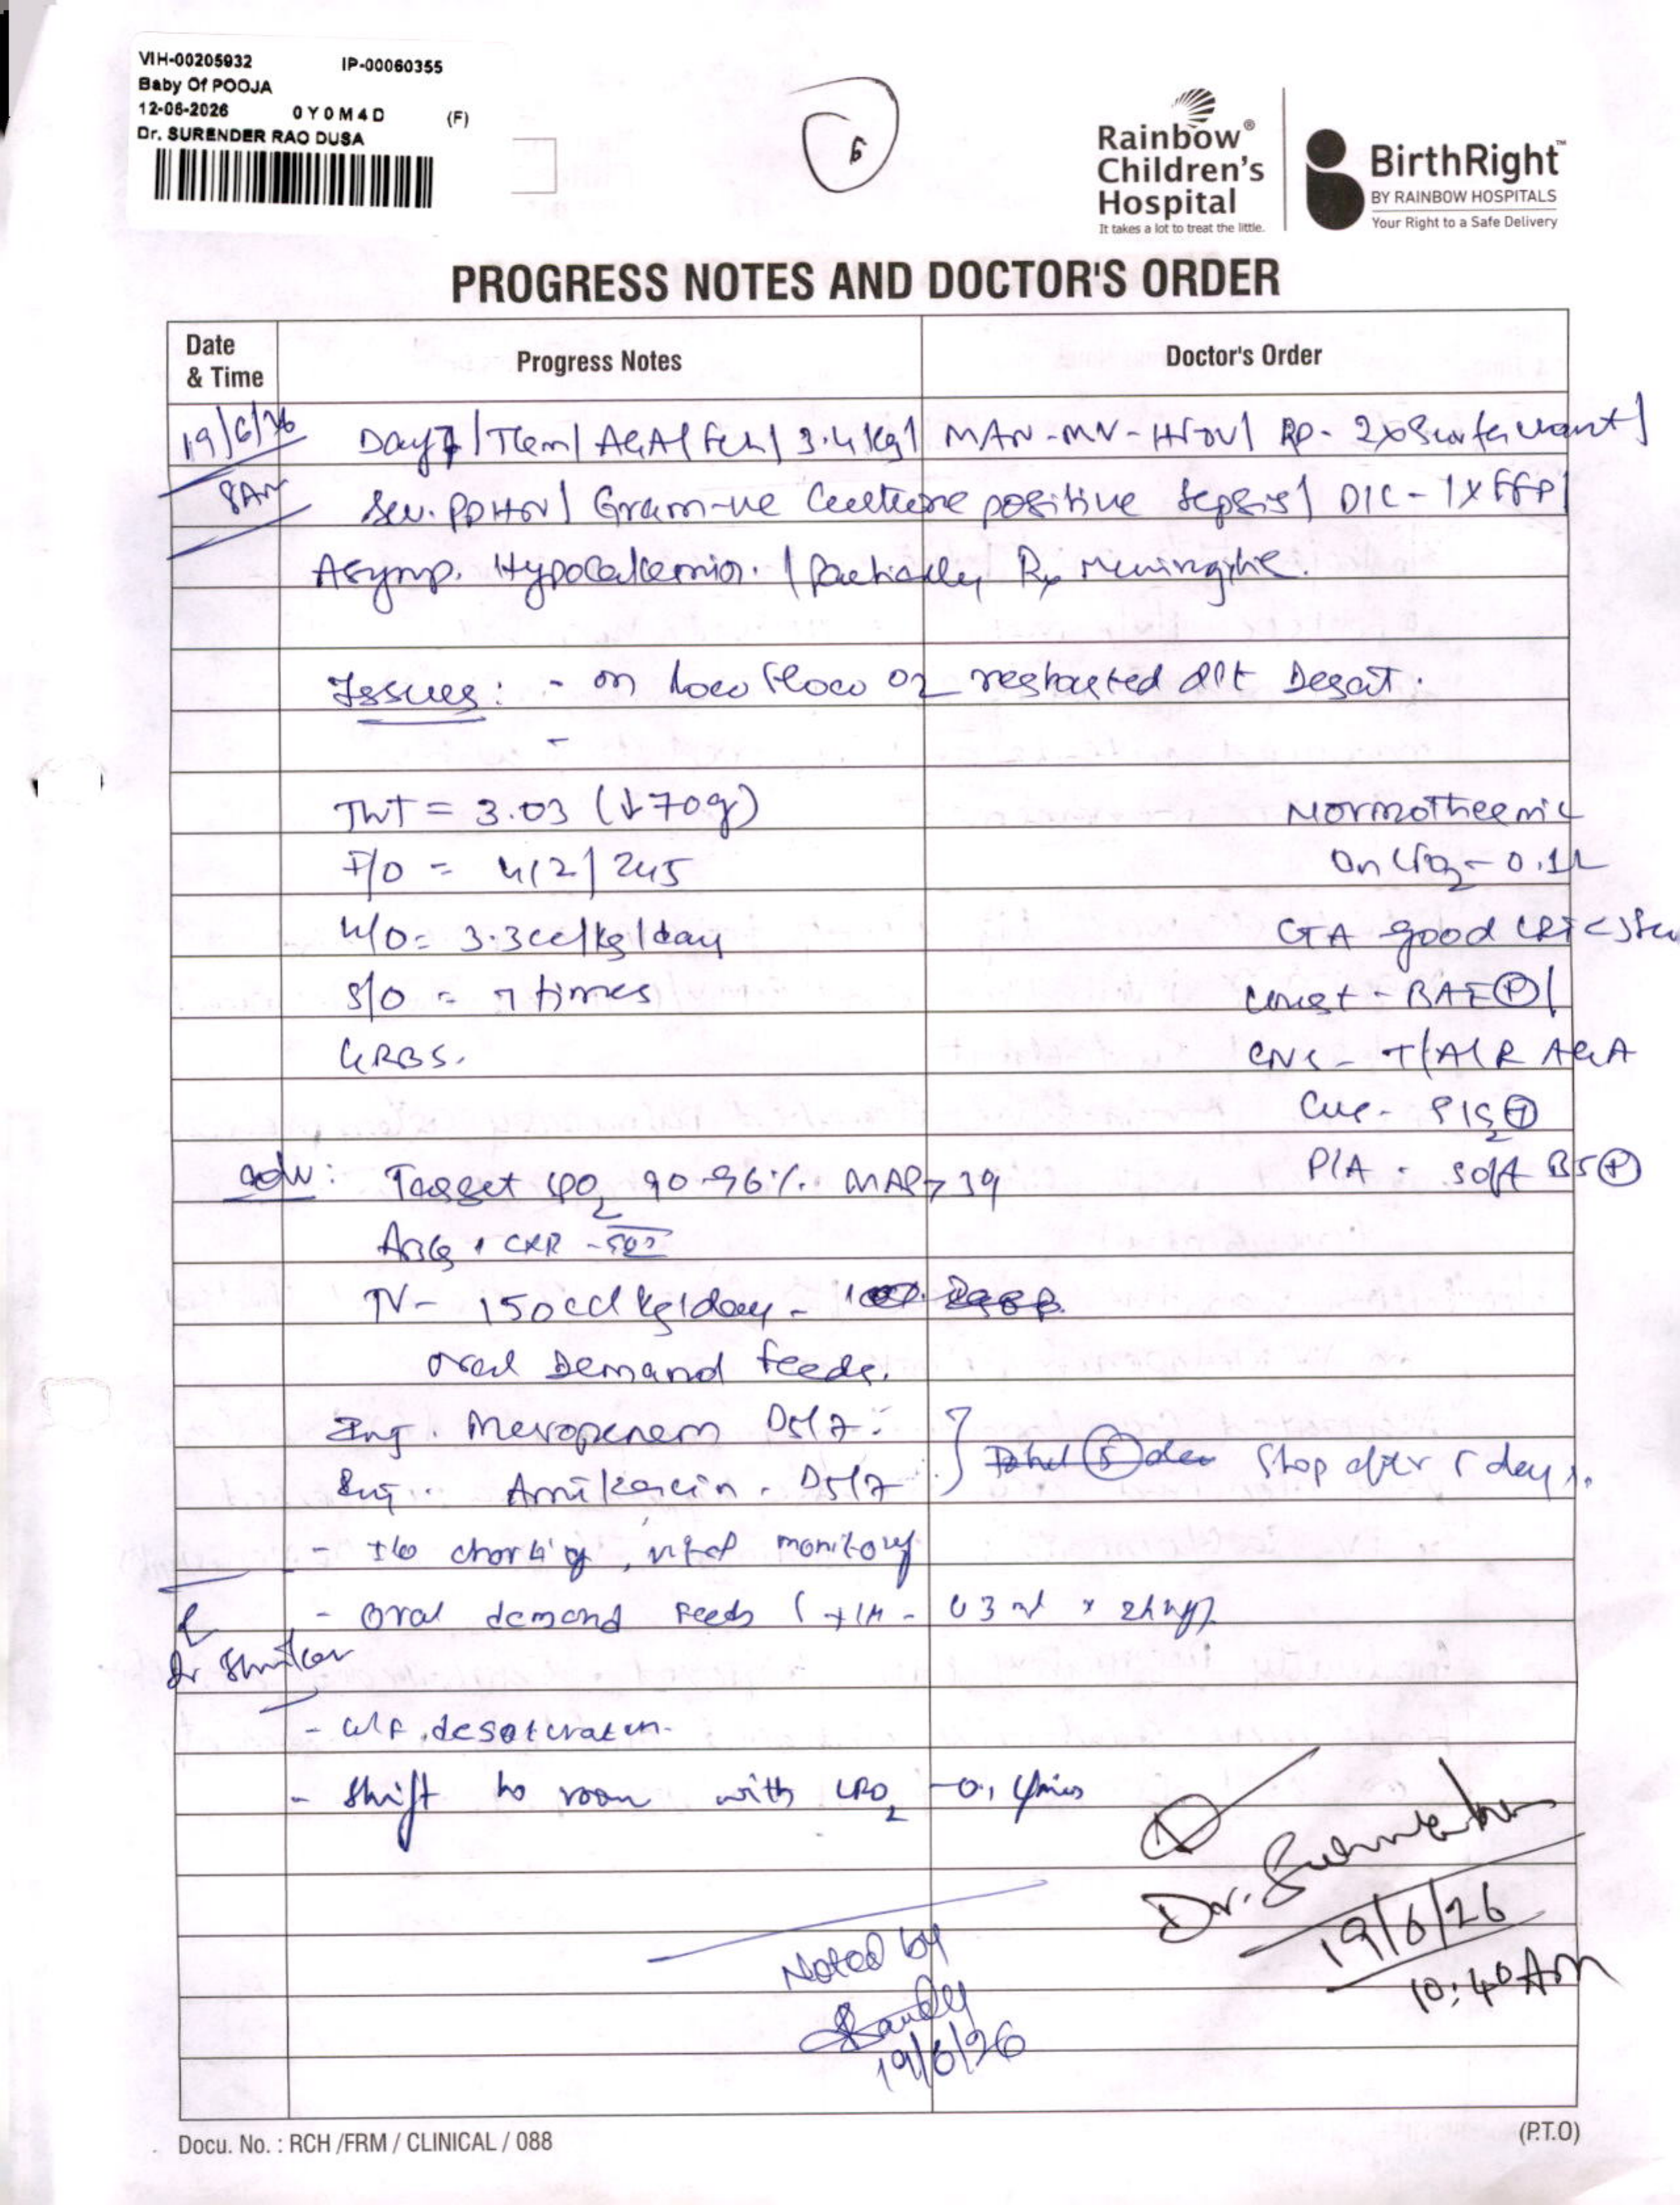 VIH-00205932 IP-00060355
Baby Of POOJA
12-06-2026 0Y0M4D (F)
Dr. SURENDER RAO DUSA
6
Rainbow®
Children's
Hospital
It takes a lot to treat the little.
BirthRight™
BY RAINBOW HOSPITALS
Your Right to a Safe Delivery
PROGRESS NOTES AND DOCTOR'S ORDER
Date & Time
Progress Notes
Doctor's Order
19/6/26 Day 7 | Term | AGA | Fch | 3.4 kg | MAN-MN- | RD- 2x Surfactant |
8AM Sev. PPHN | Gram-ve Culture positive Sepsis | DIC - 1 x FFP |
Asymp. Hypocalcemia. | Partially Rx Meningitis.
Issues: - on Low flow O2 restarted Desat.
-
TWT = 3.03 (↓70g) Normothermic
I/O = 412 | 245 On LFO2 - 0.1L
U/O = 3.3cc/kg/day GA good CRT < 3sec
S/O = 7 times Chest - BAE (+) |
GRBS. CNS - T/A/R AGA
CVS - S1S2 (+)
P/A - soft BS (+)
Adv: Target SPO2 90-96% MAP > 39
ABG, CXR - SOS
TV - 150cc/kg/day -
Oral Demand feeds.
Inj. Meropenem D5/7
Inj. Amikacin - D5/7 } Stop after 5 days.
- I/O charting, vital monitoring
- Oral demand feeds ( - 63 ml x 2hrly)
Dr
- w/f desaturation.
- Shift to room with LFO2 - 0.1 l/min
Dr. Surender
19/6/26
10:40 AM
Noted by
Sandy
19/6/26
Docu. No. : RCH /FRM / CLINICAL / 088
(P.T.O)